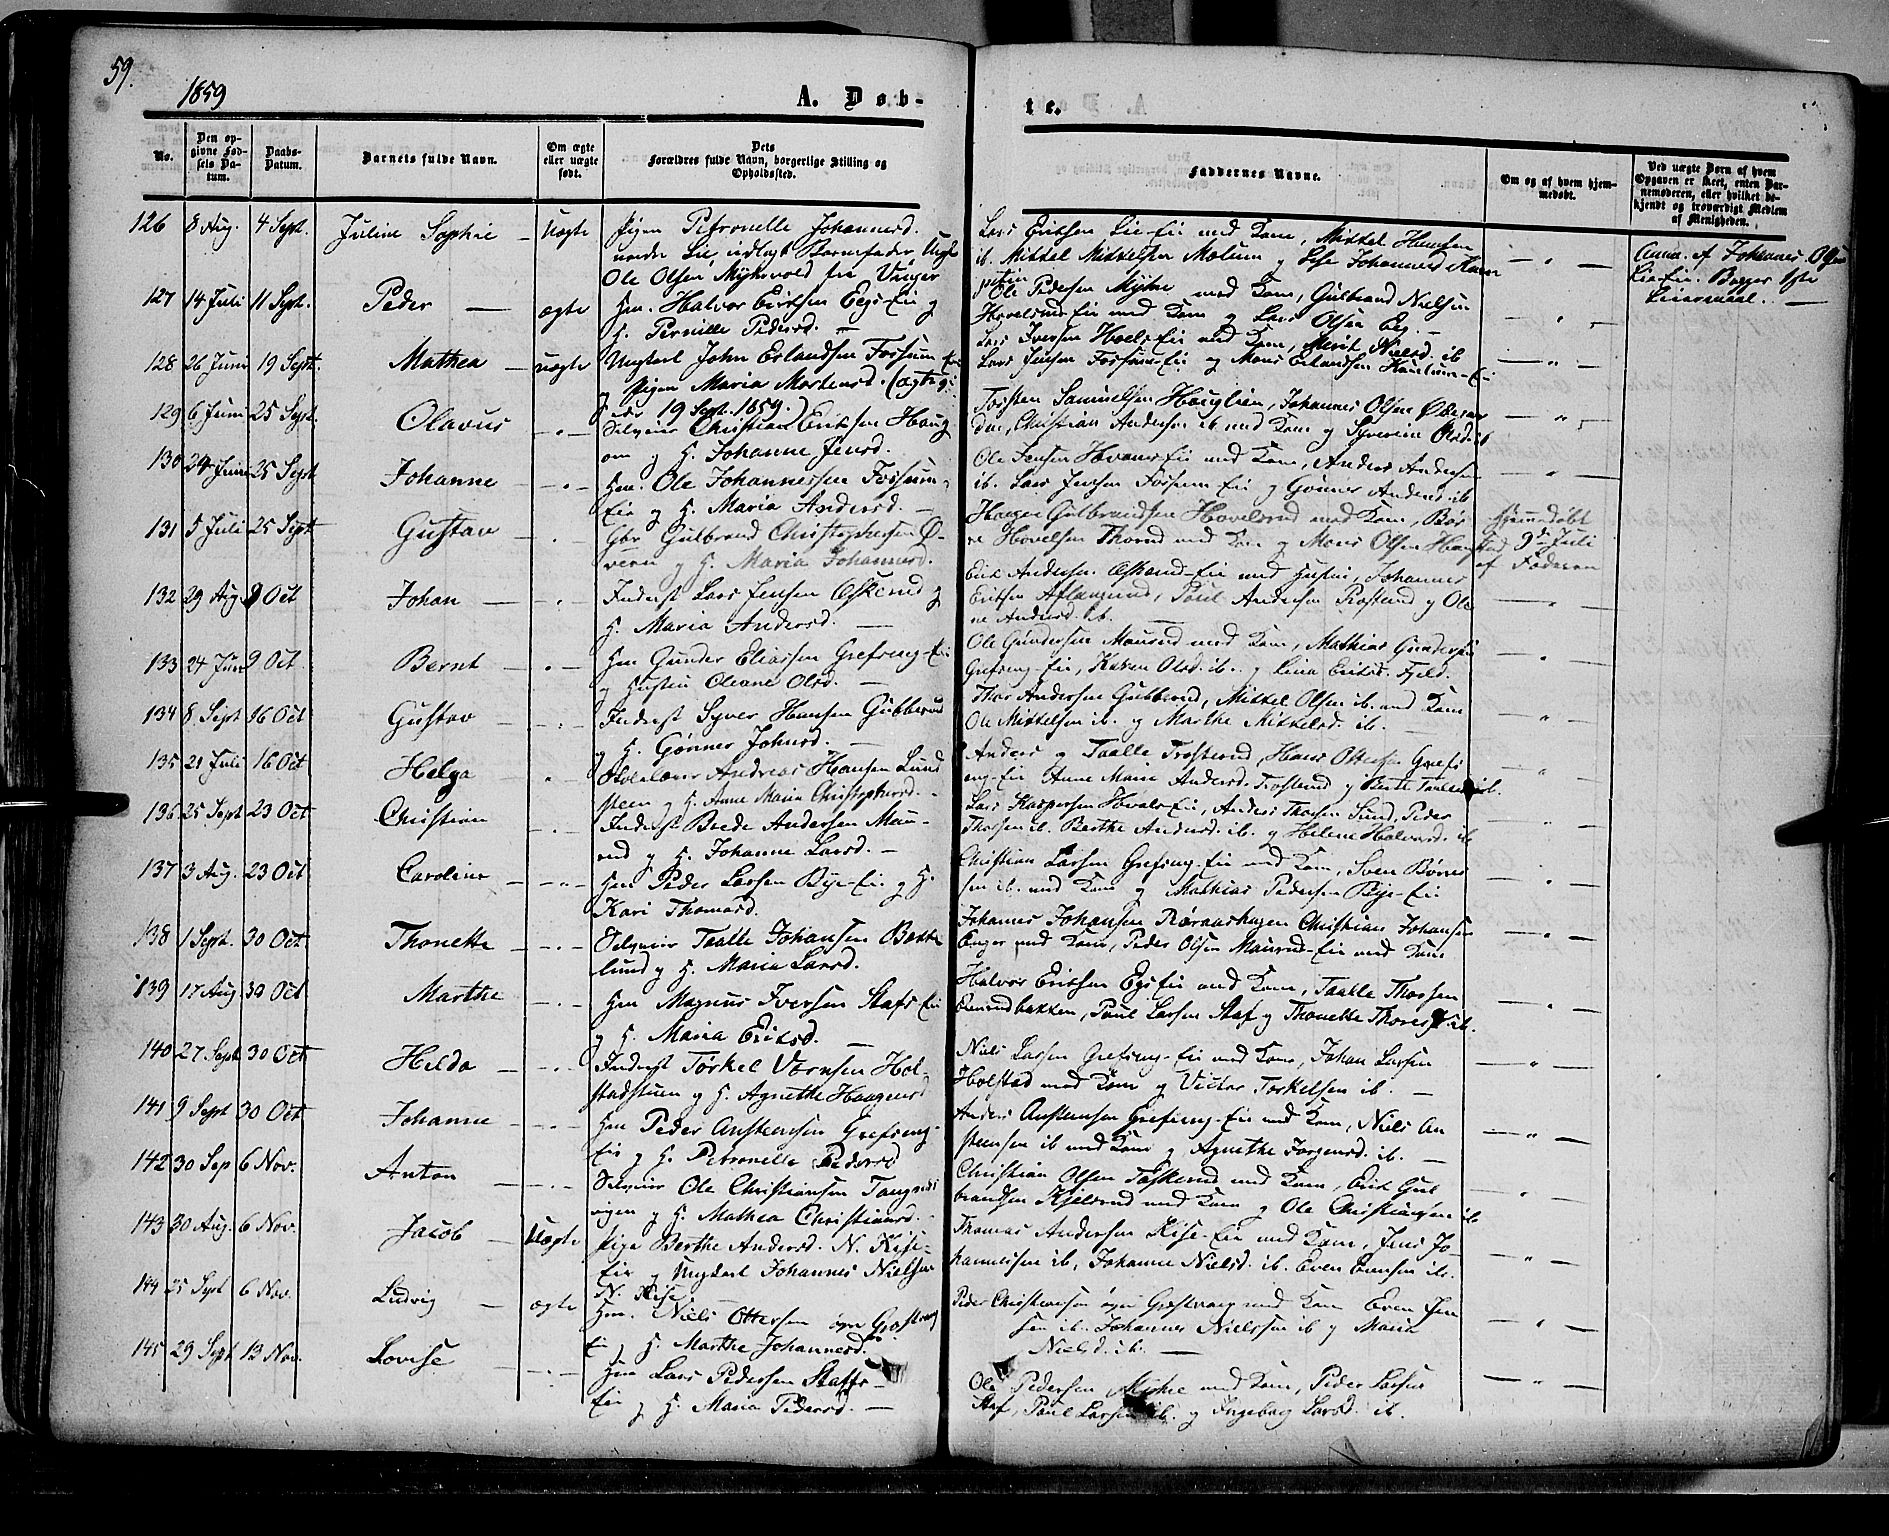 59.
1859
A. Døb-
te.
No.
Den opgivne Fødsels Datum.
Daabs-Datum.
Barnets fulde Navn.
Om ægte eller uægte født.
Dets Forældres fulde Navn, borgerlige Stilling og Opholdssted.
Faddernes Navne.
Om og af hvem hjemmedøbt.
Ved uægte Børn af hvem Opgaven er skeet, enten Barnemoderen, eller hvilket bekjendt og troværdigt Medlem af Menigheden.
126 8 Aug. 4 Sept. Juline Sophie – Uægte Pigen Petronelle Johannesd.
Ole Olsen
Lars Eriksen Lie-Eie med Kone, Mikkel Hansen
ib. Mikkel Mikkelsen Mølum og
127 14 Juli 11 Sept. Peder – ægte Hm. Halvor Eriksen Eegs-Eie og
H. Pernille Pedersd. –
Ole Pedersen Myhre med Kone, Gulbrand Nielsen
Hovelsrud-Eie med Kone og Lars Olsen Eeg. –
128 26 Juni 19 Sept. Mathea – uægte Ungkarl John Erlandsen Fossum-Eie
og Pigen Maria Mortensd. (ægte
19 Sept. 1859.)
Lars Iversen Hoels-Eie med Kone, Marit Nielsd. ib
Lars Jensen Fossum-Eie og Mons Erlandsen
129 6 Juni 25 Sept. Olavus – " – Selveier Christian Eriksen Haug
om og H. Johanne Jensd.
Torsten Samuelsen Houglien, Johannes Olsen
Christian Andersen ib med Kone og Syverine Olsd. ib
130 24 Juni 25 Sept Johanne – " – Hm. Ole Johannessen Fossum-
Eie og H. Maria Andersd. –
Ole Jensen med Kone, Anders Andersen
ib. Lars Jensen Fossum-Eie og Gønner Andersd. ib
131 5 Juli 25 Sept Gustav – " Gbr Gulbrand Christophersen Ø-
veren og H. Maria Johannesd.
Haagen Gulbrandsen Hovelsrud med Kone, Bør
re Hovelsen Thorud med Kone og Mons Olsen
Hjemmedøbt
9de Juli
af Faderen
132 29 Aug. 9 Oct Johan – " Inderst Lars Jensen Oskerud og
H. Maria Andersd. –
Erik Andersen Oskerud-Eie med Hustru, Johannes
Eriksen Paul Andersen og Ole
ne Andersd. ib. –
133 24 Juni 9 Oct Bernt – " – Hm Gunder Eliassen Grefseng-Eie
og Hustru Oleane Olsd. –
Ole Gundersen Maurud med Kone, Mathias Gundersen
Grefseng-Eie, Karen Olsd. ib. og Lina Eriksd. Fjeld.
134 8 Sept 16 Oct Gustav – " – Inderst Syver Hansen Gubberud
og H. Gønner Johnsd. –
Thor Andersen Gubberud, Mikkel Olsen ib. med Kone
Ole Mikkelsen ib. og Marthe Mikkelsd. ib. –
135 21 Juli 16 Oct Helga " Skolelærer Andreas Hansen Lund
steen og H. Anne Maria Christophersd. –
Anders og Taalle Trosterud, Hans Ottersen Grefs
eng-Eie Anne Marie Andersd. Trosterud og Berte ib.
136 25 Sept 23 Oct Christian – " – Inderst Brede Andersen Mau-
rud og H. Johanne Larsd. –
Lars Kaspersen Anders Thorsen Sund, Peder
Thorsen ib. Berthe Andersd. ib. og Helene Halvorsd. ib
137 3 Aug. 23 Oct Caroline – " – Hm Peder Larsen Bye-Eie og H.
Kari Thomasd.
Christian Larsen Grefseng-Eie med Kone, Sven Børre
sen ib. med Kone og Mathias Pedersen Bye-Eie.
138 1 Sept. 30 Oct Thonette – " – Selveier Taalle Johansen Bakke
lund og H. Maria Larsd.
Johannes Johansen Christian Johansen
Enger med Kone, Peder Olsen Maurud-Eie med Kone
139 17 Aug. 30 Oct Marthe – " – Hm Magnus Iversen Stafs-Eie
og H. Maria Eriksd. –
Halvor Eriksen Egs-Eie med Kone, Taalle Thorsen
Paul Larsen Staf og Thonette ib.
140 27 Sept 30 Oct Helda – " – Inderst Torkel Varnsen Hol-
stadstuen og H. Agnethe Haagensd
Niels Larsen Grefseng-Eie med Kone, Johan Larsen
Holstad med Kone og Victor Torkelsen ib. –
141 9 Sept 30 Oct Johanne – " – Hm Peder Anstensen Grefseng-
Eie og H. Petronelle Pedersd
Anders Anstensen Grefseng-Eie med Kone, Niels An
stensen ib med Kone og Agnethe Jørgensd. ib. –
142 30 Sep 6 Nov. Anton – " – Selveier Ole Christiansen Tangnes
vigen og H. Mathea Christiansd. –
Christian Olsen med Kone, Erik Gul
brandsen Kjelsrud med Kone og Ole Christiansen ib
143 30 Aug. 6 Nov. Jacob – Uægte Pige Berthe Andersd. N. Kise-
Eie og Ungkarl Johannes Nielsen
N. Kise –
Thomas Andersen Kise-Eie med Kone, Jens Jo-
hannessen ib, Johanne Nielsd. ib. Even Evensen ib.
144 25 Sept 6 Nov. Ludvig – ægte Hm. Niels Ottersen
Eie og H. Marthe Johannesd.
Peder Christiansen med Kone Even Jen
sen ib. Johannes Nielssen ib og Maria
Nielsd. ib. –
145 29 Sept 13 Nov. Lovise – " – Hm Lars Pedersen Staffs-
Eie og H. Maria Pedersd. –
Ole Pedersen Myhre med Kone, Peder Larsen
Staf, Paul Larsen ib. og Ingeborg Larsd. ib.